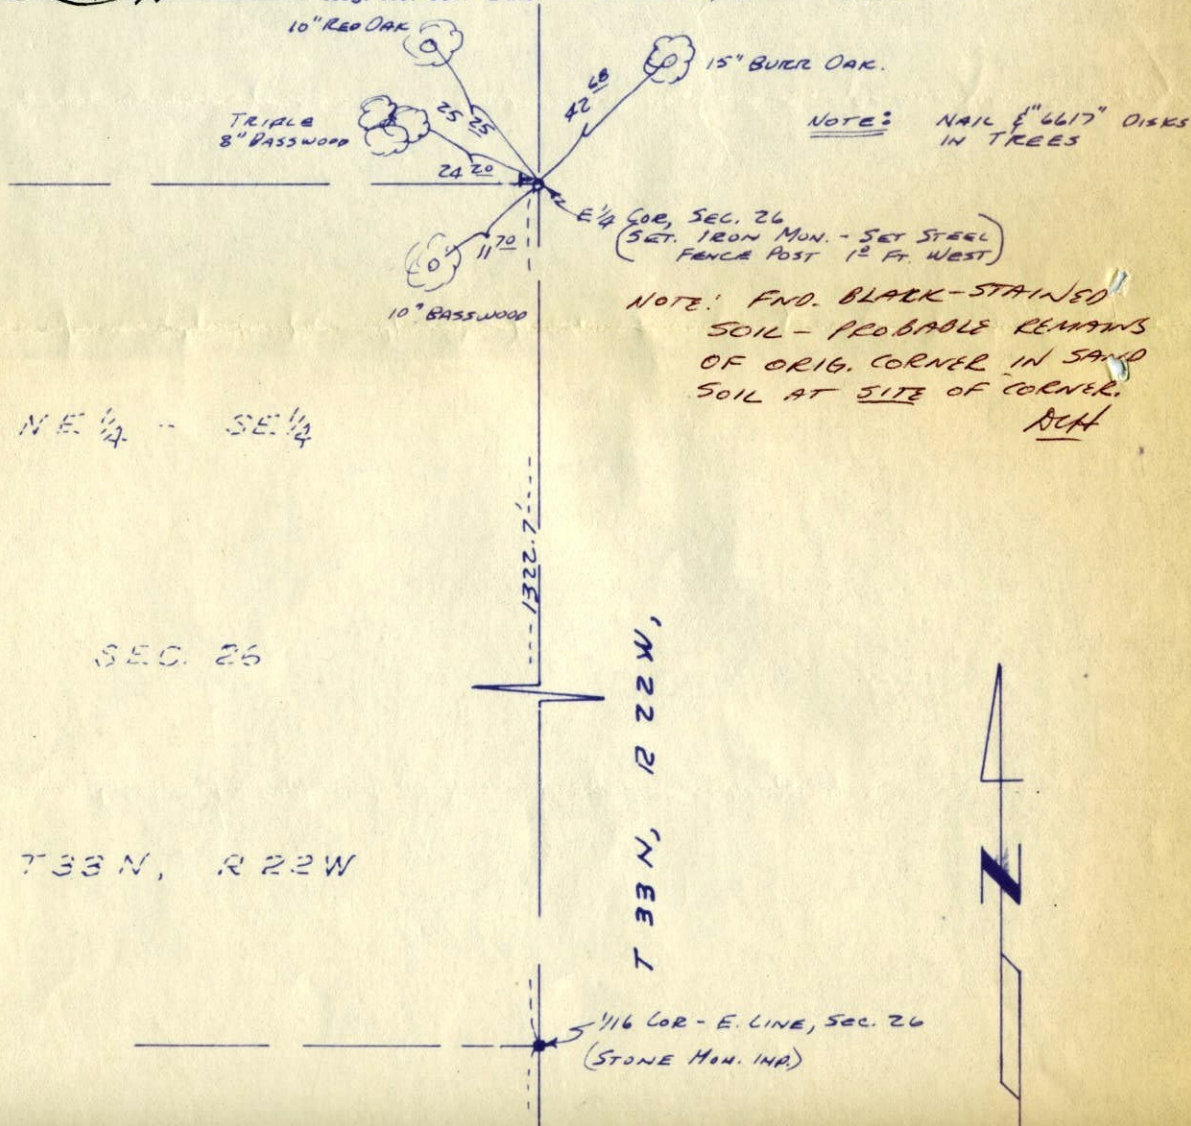 10" RED OAK
15" BURR OAK.
TRIPLE
8" BASSWOOD
25 25
42 68
NOTE: NAIL & "6617" DISKS
IN TREES
24 20
E 1/4 COR, SEC. 26
(SET. IRON MON. - SET STEEL
FENCE POST 1º FT. WEST)
11 70
10" BASSWOOD
NOTE: FND. BLACK-STAINED
SOIL - PROBABLE REMAINS
OF ORIG. CORNER IN SAND
SOIL AT SITE OF CORNER.
DCH
NE 1/4 - SE 1/4
1322.7'
SEC. 26
T 33 N, R 22 W,
T 33 N, R 22 W
N
1/16 COR - E. LINE, SEC. 26
(STONE MON. INP.)